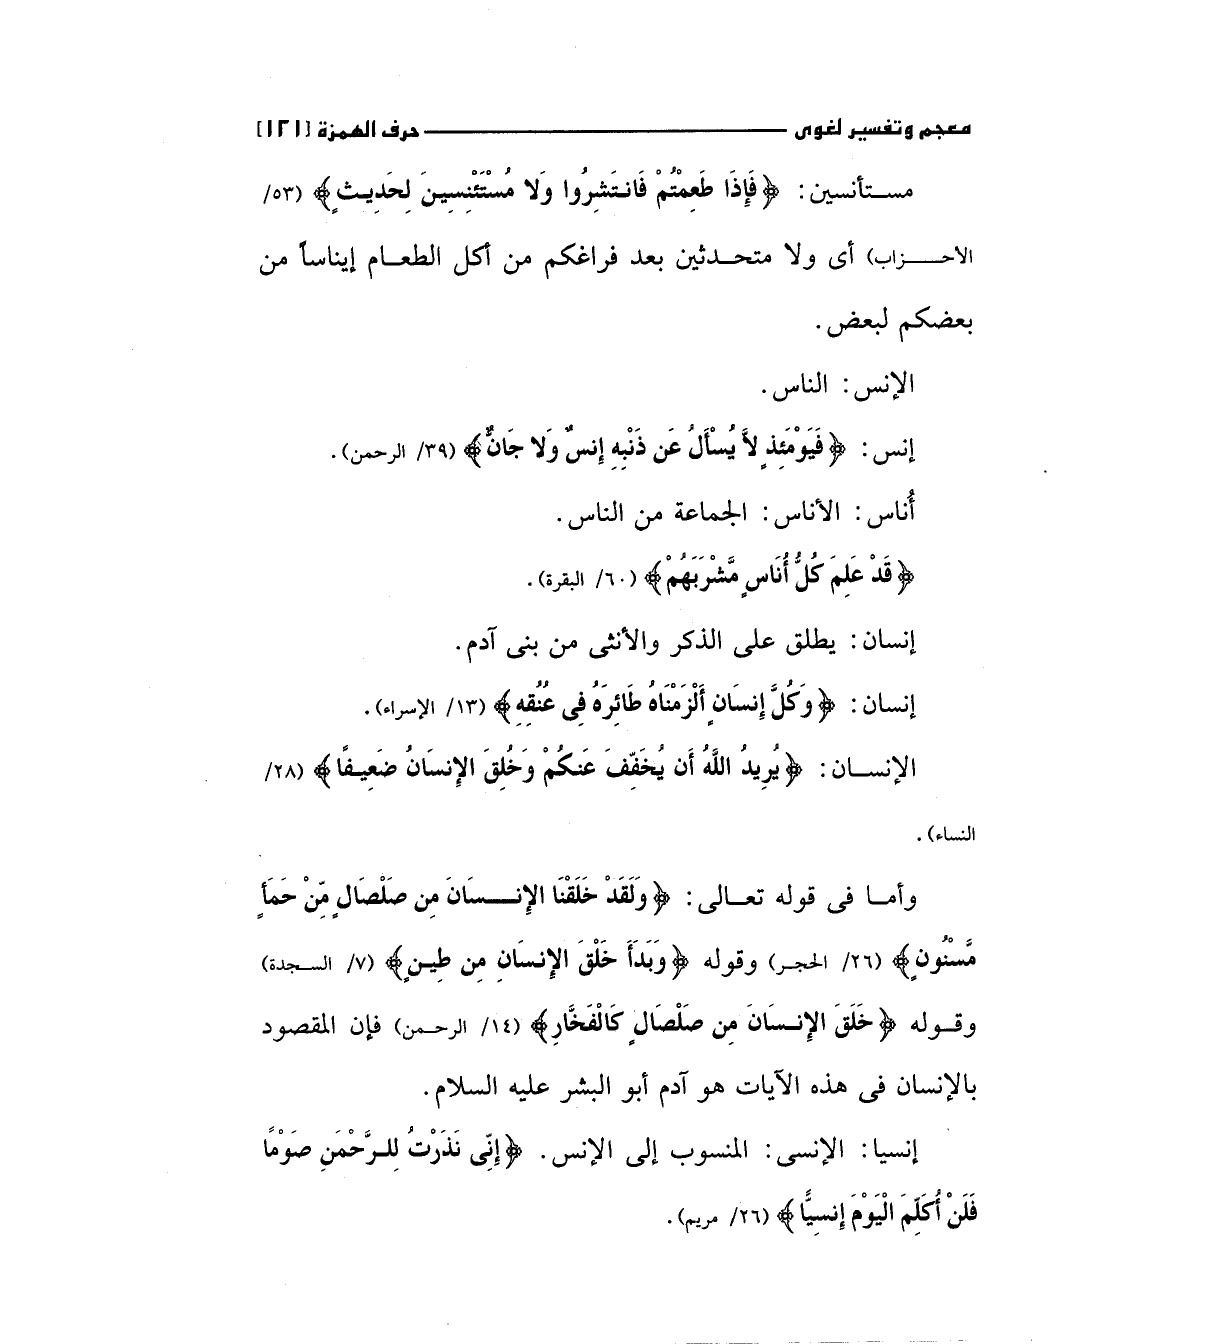 معجم وتفسير لغوى ــــــــــ حرف الهمزة [١٢١]
مستأنسين: ﴿فَإِذَا طَعِمْتُمْ فَانتَشِرُوا وَلا مُسْتَئْنِسِينَ لِحَدِيثٍ﴾ (٥٣/
الاحزاب) أى ولا متحدثين بعد فراغكم من أكل الطعام إيناساً من
بعضكم لبعض.
الإنس: الناس.
إنس: ﴿فَيَوْمَئِذٍ لاَّ يُسْأَلُ عَن ذَنْبِهِ إِنسٌ وَلا جَانٌّ﴾ (٣٩/ الرحمن).
أُناس: الأناس: الجماعة من الناس.
﴿قَدْ عَلِمَ كُلُّ أُنَاسٍ مَّشْرَبَهُمْ﴾ (٦٠/ البقرة).
إنسان: يطلق على الذكر والأنثى من بنى آدم.
إنسان: ﴿وَكُلَّ إِنسَانٍ أَلْزَمْنَاهُ طَائِرَهُ فِى عُنُقِهِ﴾ (١٣/ الإسراء).
الإنسان: ﴿يُرِيدُ اللَّهُ أَن يُخَفِّفَ عَنكُمْ وَخُلِقَ الإِنسَانُ ضَعِيفًا﴾ (٢٨/
النساء).
وأما فى قوله تعالى: ﴿وَلَقَدْ خَلَقْنَا الإِنسَانَ مِن صَلْصَالٍ مِّنْ حَمَأٍ
مَّسْنُونٍ﴾ (٢٦/ الحجر) وقوله ﴿وَبَدَأَ خَلْقَ الإِنسَانِ مِن طِينٍ﴾ (٧/ السجدة)
وقوله ﴿خَلَقَ الإِنسَانَ مِن صَلْصَالٍ كَالْفَخَّارِ﴾ (١٤/ الرحمن) فإن المقصود
بالإنسان فى هذه الآيات هو آدم أبو البشر عليه السلام.
إنسيا: الإنسى: المنسوب إلى الإنس. ﴿إِنِّى نَذَرْتُ لِلرَّحْمَنِ صَوْمًا
فَلَنْ أُكَلِّمَ الْيَوْمَ إِنسِيًّا﴾ (٢٦/ مريم).